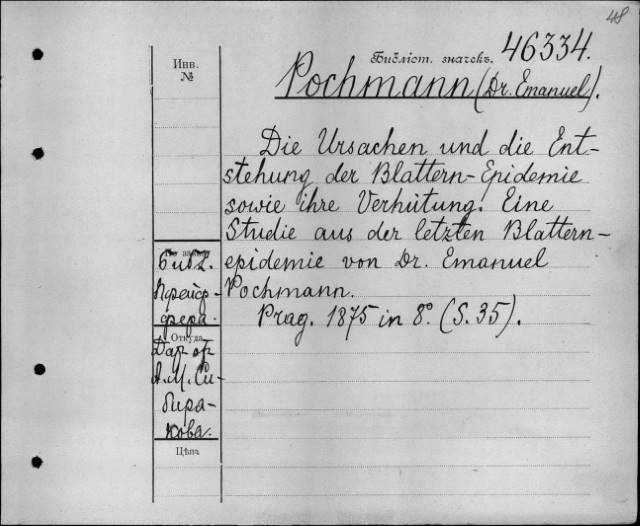 48
Инв.
№
Библіот. значекъ. 46334.
Pochmann (Dr. Emanuel).
Die Ursachen und die Ent-
stehung der Blattern-Epidemie
sowie ihre Verhütung. Eine
Studie aus der letzten Blattern-
epidemie von Dr. Emanuel
Pochmann.
Prag. 1875 in 8º. (S. 35).
Библ.
Прейф-
фера.
Откуда.
Дар от
А. М. Си-
биря-
кова.
Цѣна.